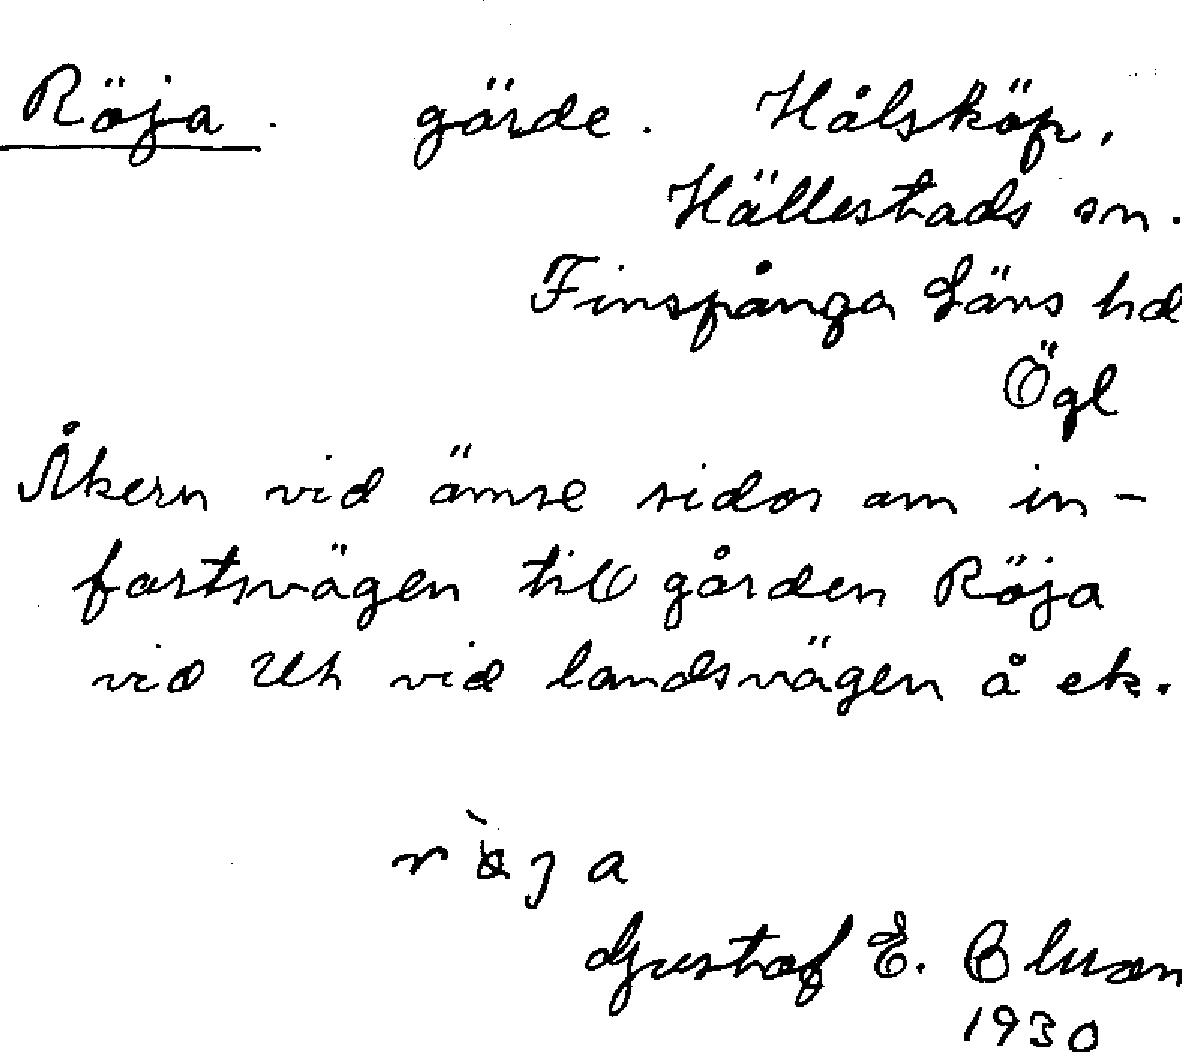 Röja. gärde. Hålsköp,
Hällestads sn.
Finspånga Läns hd
Ögl
Åkern vid ömse sidor om in-
fartsvägen till gården Röja
vid Uh vid landsvägen å ek.
Gustaf E. Bluan
1930